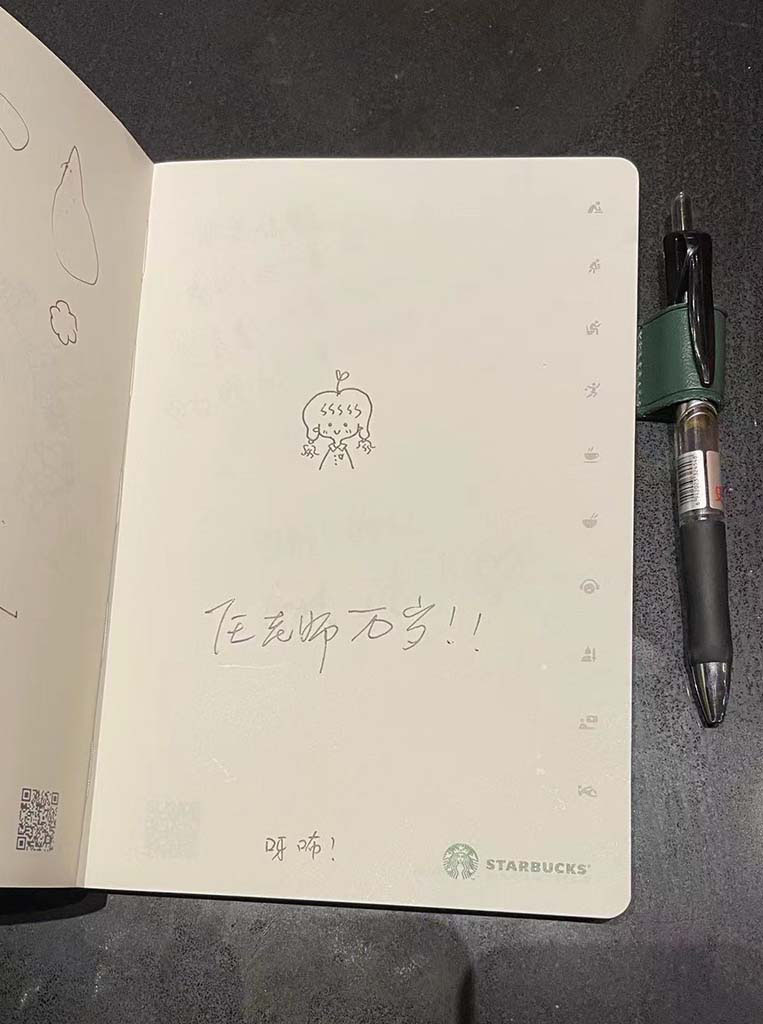 任老师万岁!!
呀咘!
STARBUCKS